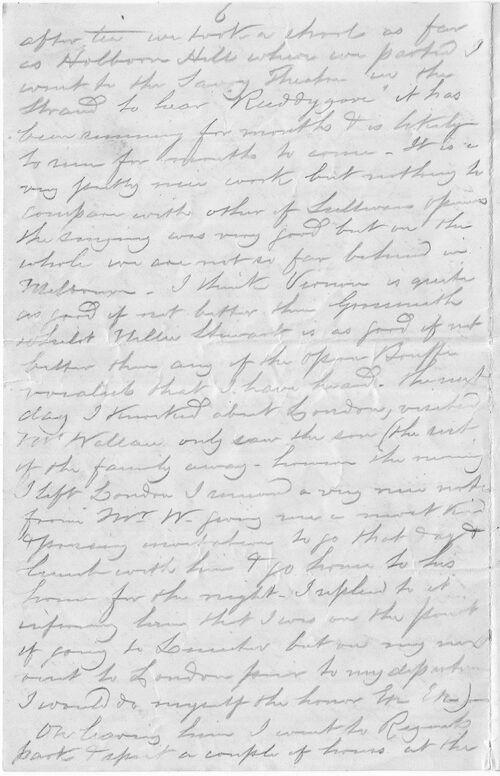 6
after tea we took a stroll as far
as Holborn Hill where we parted I
went to the Savoy Theatre in the
Strand to hear "Ruddygore" it has
been running for months & is likely
to run for months to come - It is a
very pretty nice work but nothing to
compare with other of Sullivans operas
the singing was very good but on the
whole we are not so far behind in
Melbourne - I think Vernon is quite
as good if not better than Grossmith
whilst Nellie Stewart is as good if not
better than any of the Opera Bouffe
vocalists that I have heard. The next
day I knocked about London, visited
Mr Wallace only saw the son (the rest
of the family away - however the morning
I left London I received a very nice note
from Mr W. giving me a most kind
& pressing invitation to go that day &
lunch with him & go home to his
home for the night - I replied to it
informing him that I was on the point
of going to Leicester but on my next
visit to London prior to my departure
I would do myself the honor Etc Etc) -
On leaving him I went to Regents
park & spent a couple of hours at the